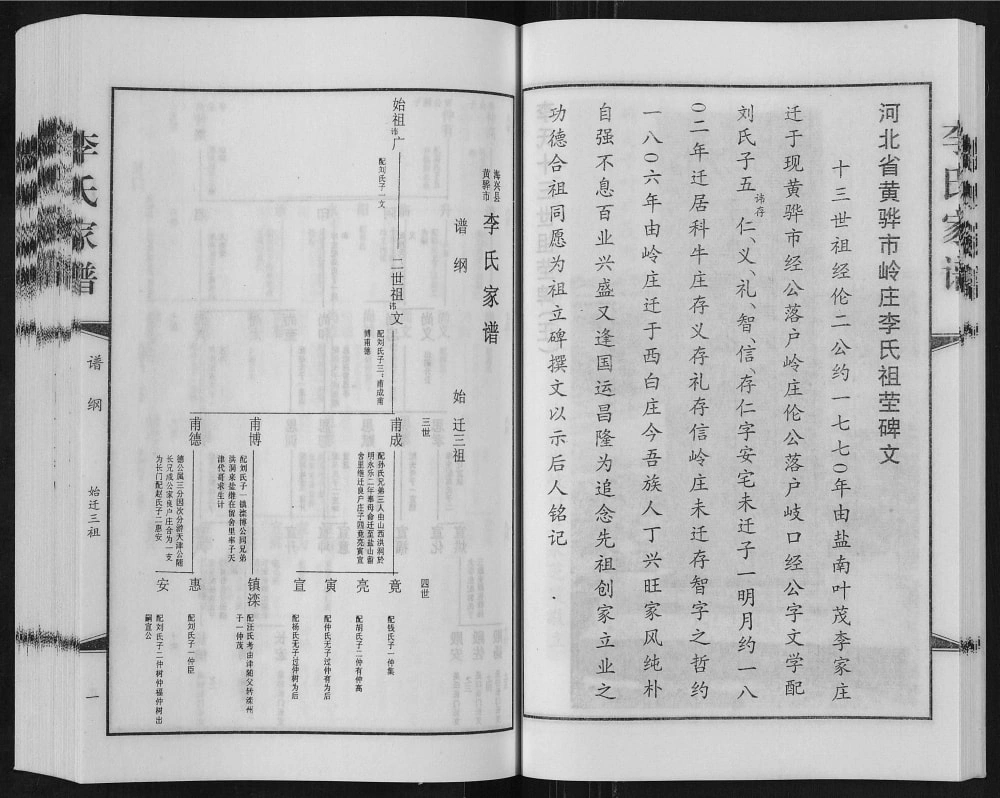 李氏家谱
河北省黄骅市岭庄李氏祖茔碑文
十三世祖经伦二公约一七七〇年由盐南叶茂李家庄
迁于现黄骅市经公落户岭庄伦公落户岐口经公字文学配
刘氏子五讳存仁、义、礼、智、信、存仁字安宅未迁子一明月约一八
〇二年迁居科牛庄存义存礼存信岭庄未迁存智字之哲约
一八〇六年由岭庄迁于西白庄今吾族人丁兴旺家风纯朴
自强不息百业兴盛又逢国运昌隆为追念先祖创家立业之
功德合祖同愿为祖立碑撰文以示后人铭记
海兴县
黄骅市
李氏家谱
谱纲
始迁三祖
始祖讳广
配刘氏子一文
二世祖讳文
配刘氏子三：甫成甫
博甫德
三世
甫成
配孙氏兄弟三人由山西洪洞於
明永乐二年奉母命迁至盐山留
舍里继迁良户庄子四竟亮寅宣
甫博
配刘氏子一镇滦博公同兄弟
洪洞来盐继在留舍里率子天
津代哥求生计
甫德
德公属三分因次分游天津公随
长兄成公家良户庄合为一支
为长门配赵氏子二惠安
四世
竟
配钱氏子一仲集
亮
配胡氏子二仲有仲高
寅
配仲氏无子过仲有为后
宣
配杨氏无子过仲树为后
镇滦
配汪氏考由津随父转滦州
子一仲茂
惠
配刘氏子一仲臣
安
配刘氏子二仲树仲福仲树出
嗣宣公
李氏家谱
谱纲
始迁三祖
一